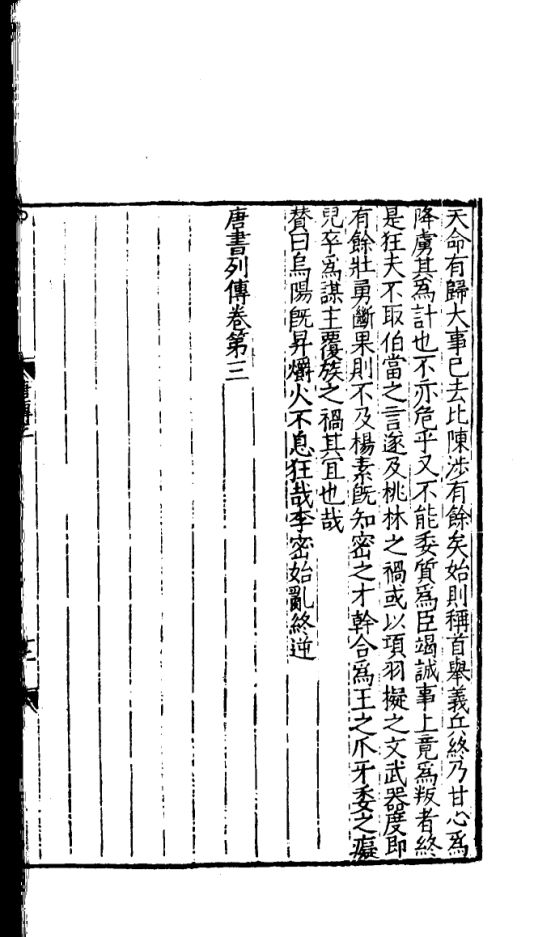 天命有歸大事巳去比陳涉有餘矣始則稱首舉義兵終乃甘心爲
降虜其爲計也不亦危乎又不能委質爲臣竭誠事上竟爲叛者終
是狂夫不取伯當之言遂及桃林之禍或以項羽擬之文武器度即
有餘壯勇斷果則不及楊素旣知密之才幹合爲王之爪牙委之癡
兒卒爲謀主覆族之禍其冝也哉
賛曰烏陽旣昇爝火不息狂哉李密始亂終逆
唐書列傳卷第三